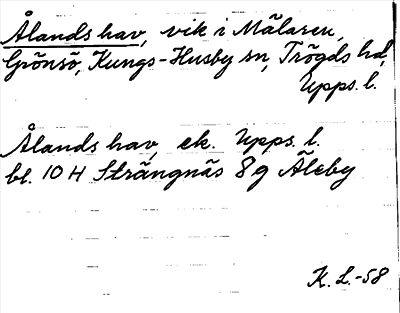 Ålands hav, vik i Mälaren,
Grönsö, Kungs-Husby sn, Trögds hd,
Upps. l.
Ålands hav, ek. Upps. l.
bl. 10 H Strängnäs 8g Åleby
K. L.-58